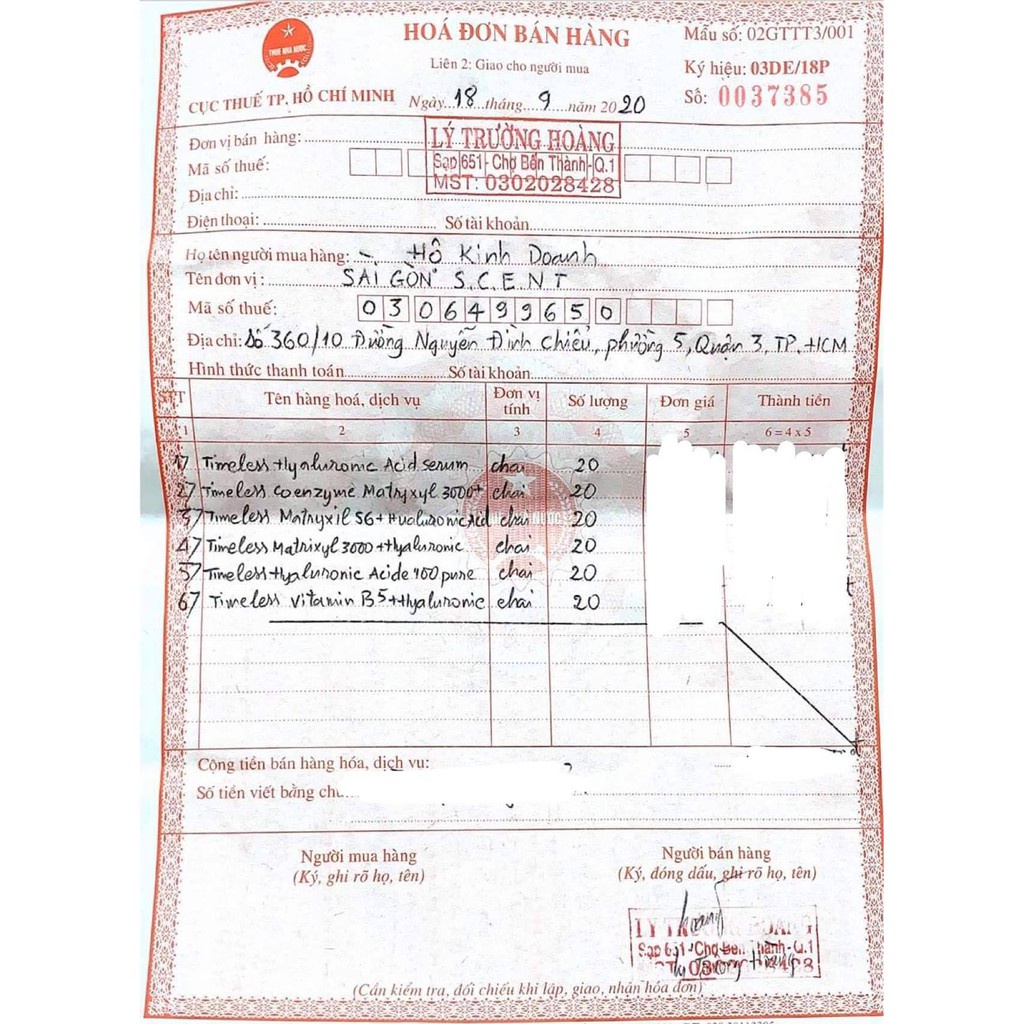 HOÁ ĐƠN BÁN HÀNG
Mẫu số: 02GTTT3/001
THUẾ NHÀ NƯỚC
Liên 2: Giao cho người mua
Ký hiệu: 03DE/18P
CỤC THUẾ TP. HỒ CHÍ MINH
Ngày 18 tháng 9 năm 2020
Số: 0037385
Đơn vị bán hàng:
LÝ TRƯỜNG HOÀNG
Mã số thuế:
Sạp 651 - Chợ Bến Thành - Q.1
MST: 0302028428
Địa chỉ:
Điện thoại: Số tài khoản
Họ tên người mua hàng: - Hộ Kinh Doanh
Tên đơn vị: SÀI GÒN S.C.E.N.T
Mã số thuế: 0306499650
Địa chỉ: Số 360/10 Đường Nguyễn Đình Chiểu, phường 5, Quận 3, TP. HCM
Hình thức thanh toán Số tài khoản
STT Tên hàng hoá, dịch vụ Đơn vị tính Số lượng Đơn giá Thành tiền
1 2 3 4 5 6 = 4 x 5
1/ Timeless Hyaluronic Acid serum chai 20
2/ Timeless Coenzyme Matryxyl 3000+ chai 20
3/ Timeless Matryxil S6+Hualuronic Acid chai 20
4/ Timeless Matrixyl 3000+Hyaluronic chai 20
5/ Timeless Hyaluronic Acide 100 pure chai 20
6/ Timeless Vitamin B5+Hyaluronic chai 20
Cộng tiền bán hàng hóa, dịch vụ:
Số tiền viết bằng
Người mua hàng Người bán hàng
(Ký, ghi rõ họ, tên) (Ký, đóng dấu, ghi rõ họ, tên)
LÝ TRƯỜNG HOÀNG
Sạp 651 - Chợ Bến Thành - Q.1
(Cần kiểm tra, đối chiếu khi lập, giao, nhận hóa đơn)